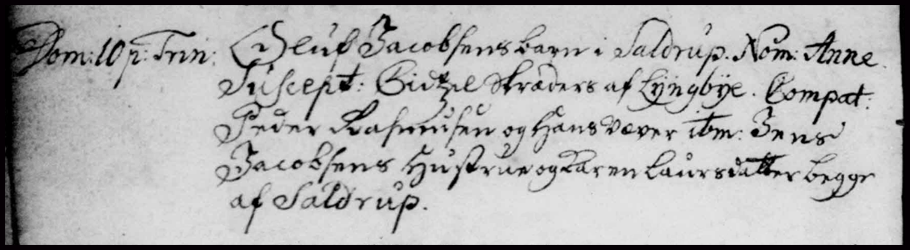 Dom: 10 p: Trin: Oluf Jacobsens barn i Saldrup. Nom: Anne.
Suscept: Sidzel Skræders af Lyngbye. Compat:
Peder Rasmusen og Hans Væver ibm: Jens
Jacobsens Hustrue og Karen Laursdatter begge
af Saldrup.